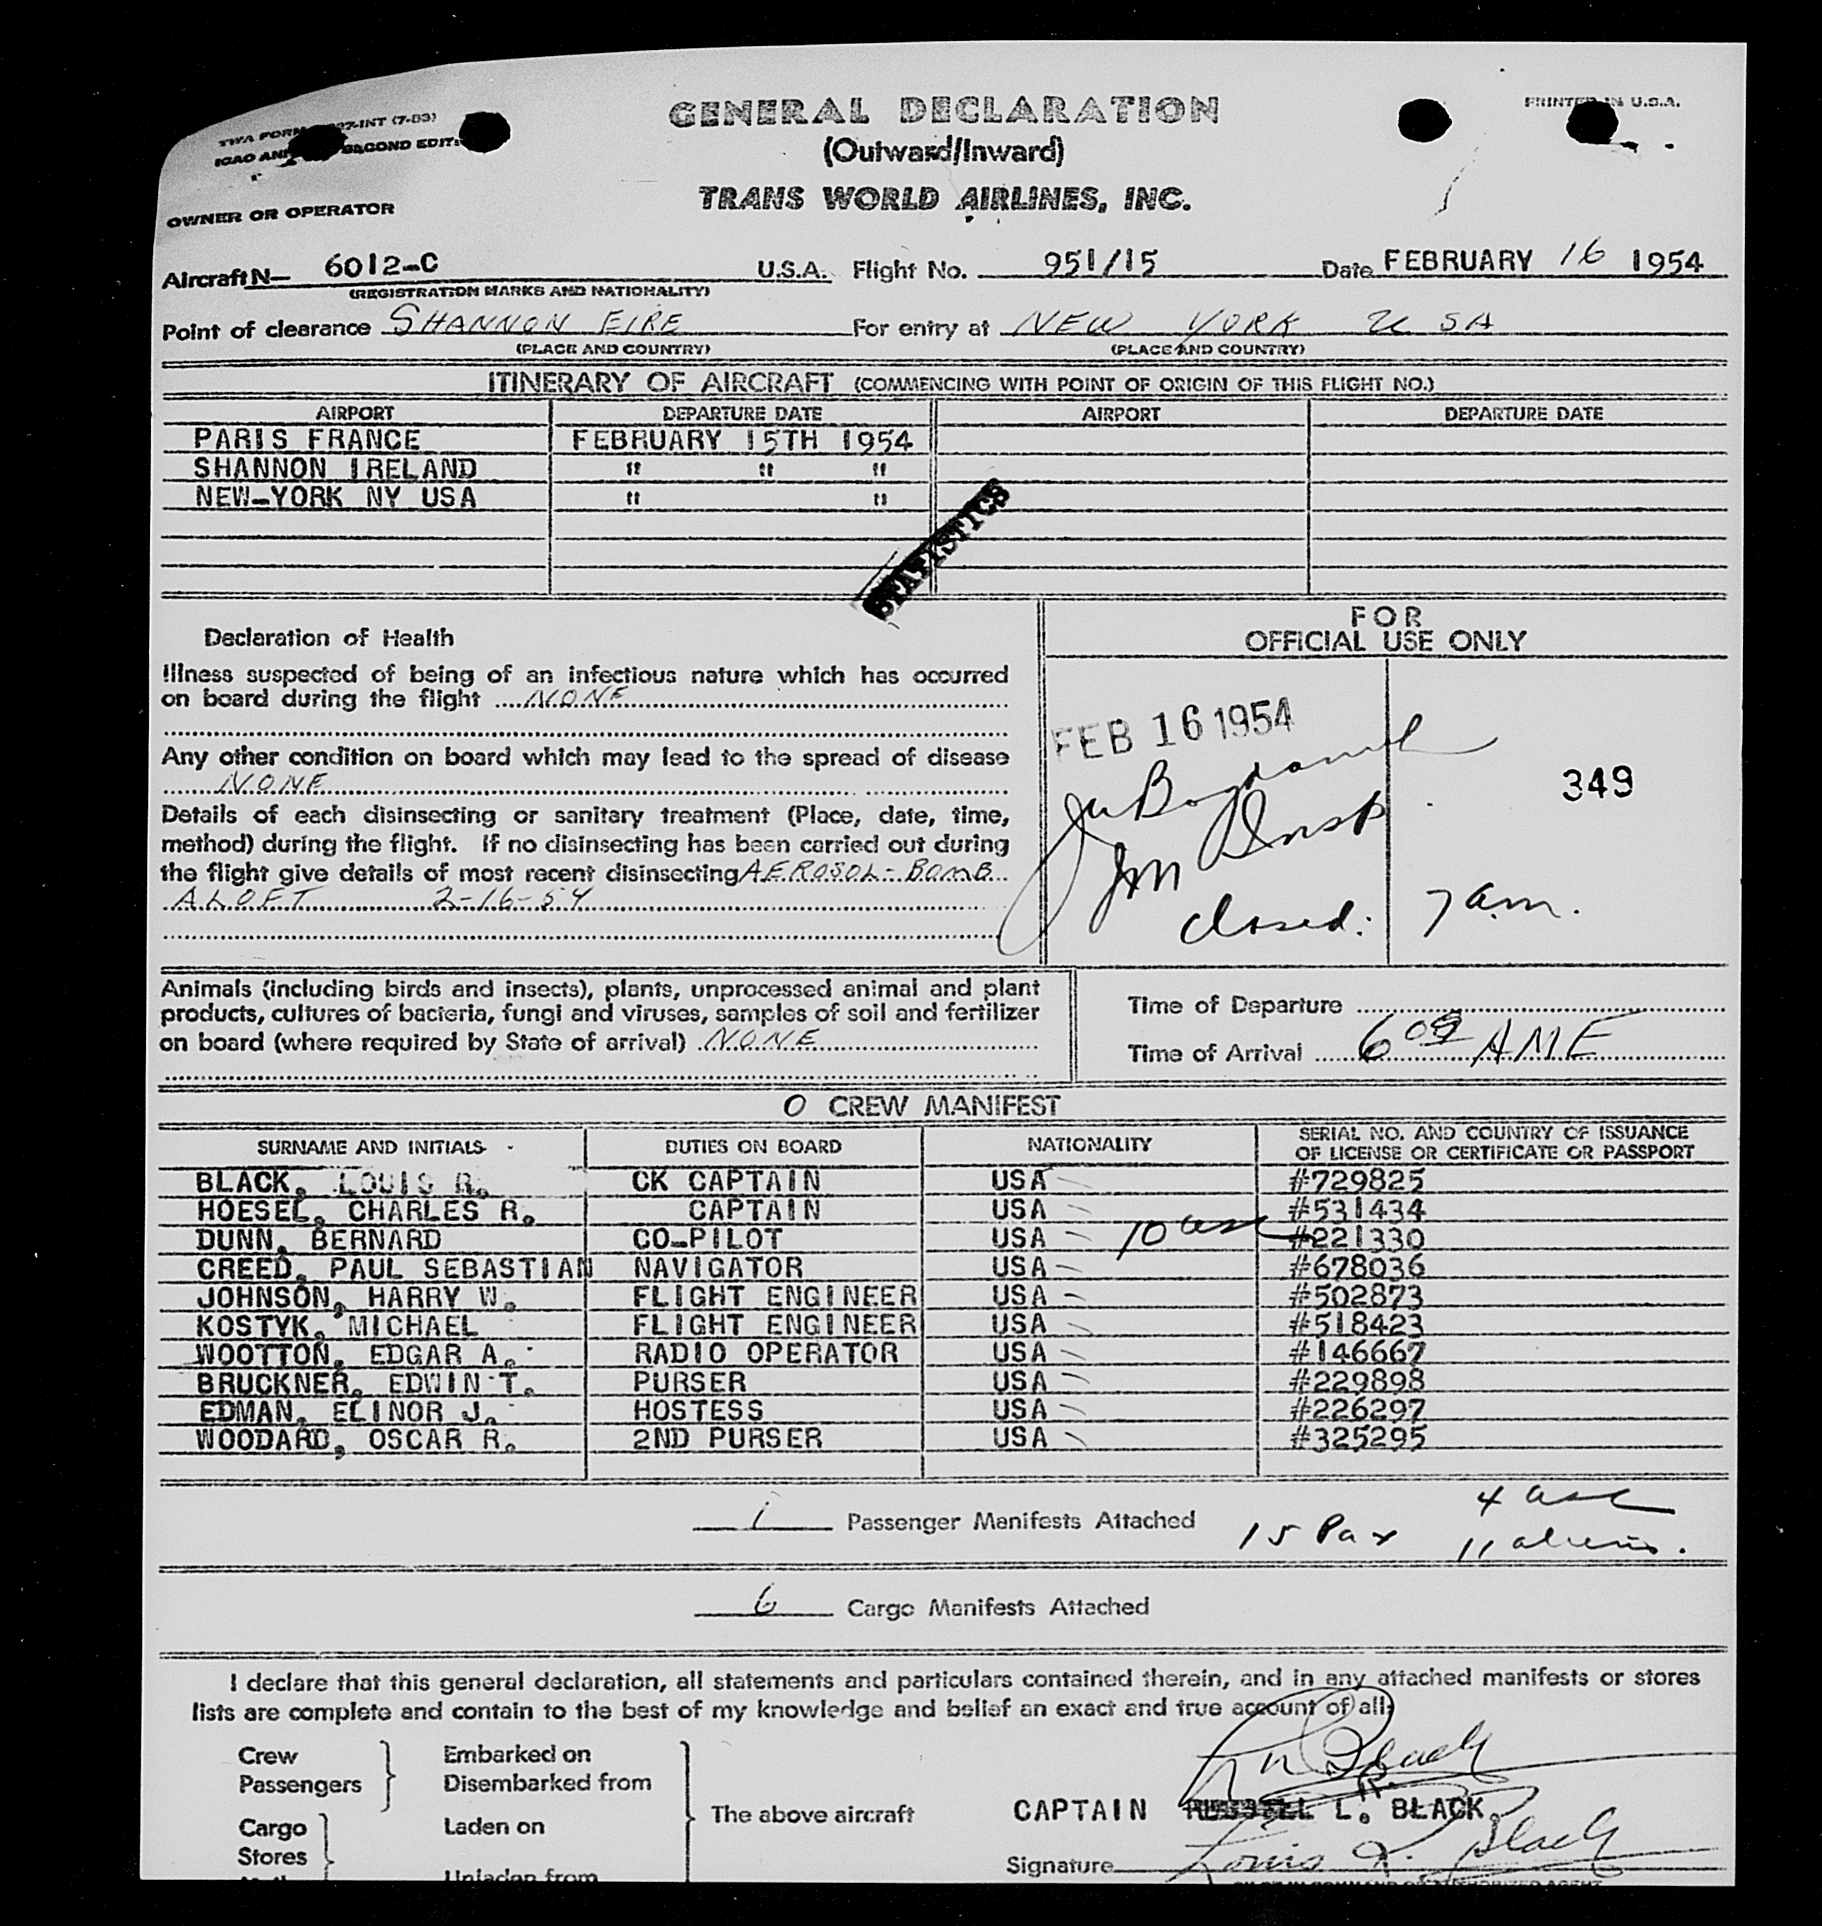 GENERAL DECLARATION
PRINTED IN U.S.A.
(Outward/Inward)
TWA FORM 27-INT (7-53)
ICAO SECOND EDIT.
TRANS WORLD AIRLINES, INC.
OWNER OR OPERATOR
Aircraft N— 6012-C U.S.A. Flight No. 951/15 Date FEBRUARY 16 1954
(REGISTRATION MARKS AND NATIONALITY)
Point of clearance SHANNON EIRE For entry at NEW YORK USA
(PLACE AND COUNTRY) (PLACE AND COUNTRY)
ITINERARY OF AIRCRAFT (COMMENCING WITH POINT OF ORIGIN OF THIS FLIGHT NO.)
AIRPORT DEPARTURE DATE AIRPORT DEPARTURE DATE
PARIS FRANCE FEBRUARY 15TH 1954
SHANNON IRELAND " " "
NEW-YORK NY USA " "
STATISTICS
Declaration of Health
Illness suspected of being of an infectious nature which has occurred
on board during the flight NONE
Any other condition on board which may lead to the spread of disease
NONE
Details of each disinsecting or sanitary treatment (Place, date, time,
method) during the flight. If no disinsecting has been carried out during
the flight give details of most recent disinsecting AEROSOL-BOMB
ALOFT 2-16-54
FOR
OFFICIAL USE ONLY
FEB 16 1954
349
Insp
closed: 7 a.m.
Animals (including birds and insects), plants, unprocessed animal and plant
products, cultures of bacteria, fungi and viruses, samples of soil and fertilizer
on board (where required by State of arrival) NONE
Time of Departure
Time of Arrival 6 09 AME
O CREW MANIFEST
SURNAME AND INITIALS DUTIES ON BOARD NATIONALITY SERIAL NO. AND COUNTRY OF ISSUANCE
OF LICENSE OR CERTIFICATE OR PASSPORT
BLACK, LOUIS R. CK CAPTAIN USA #729825
HOESEL, CHARLES R. CAPTAIN USA #531434
DUNN, BERNARD CO-PILOT USA 10 usc #221330
CREED, PAUL SEBASTIAN NAVIGATOR USA #678036
JOHNSON, HARRY W. FLIGHT ENGINEER USA #502873
KOSTYK, MICHAEL FLIGHT ENGINEER USA #518423
WOOTTON, EDGAR A. RADIO OPERATOR USA #146667
BRUCKNER, EDWIN T. PURSER USA #229898
EDMAN, ELINOR J. HOSTESS USA #226297
WOODARD, OSCAR R. 2ND PURSER USA #325295
1 Passenger Manifests Attached 15 Pax 4 usc
11 aliens.
6 Cargo Manifests Attached
I declare that this general declaration, all statements and particulars contained therein, and in any attached manifests or stores
lists are complete and contain to the best of my knowledge and belief an exact and true account of all:
Crew Embarked on
Passengers Disembarked from
The above aircraft CAPTAIN L. R. BLACK.
Cargo Laden on
Stores
Signature Louis R. Black
Unladen from